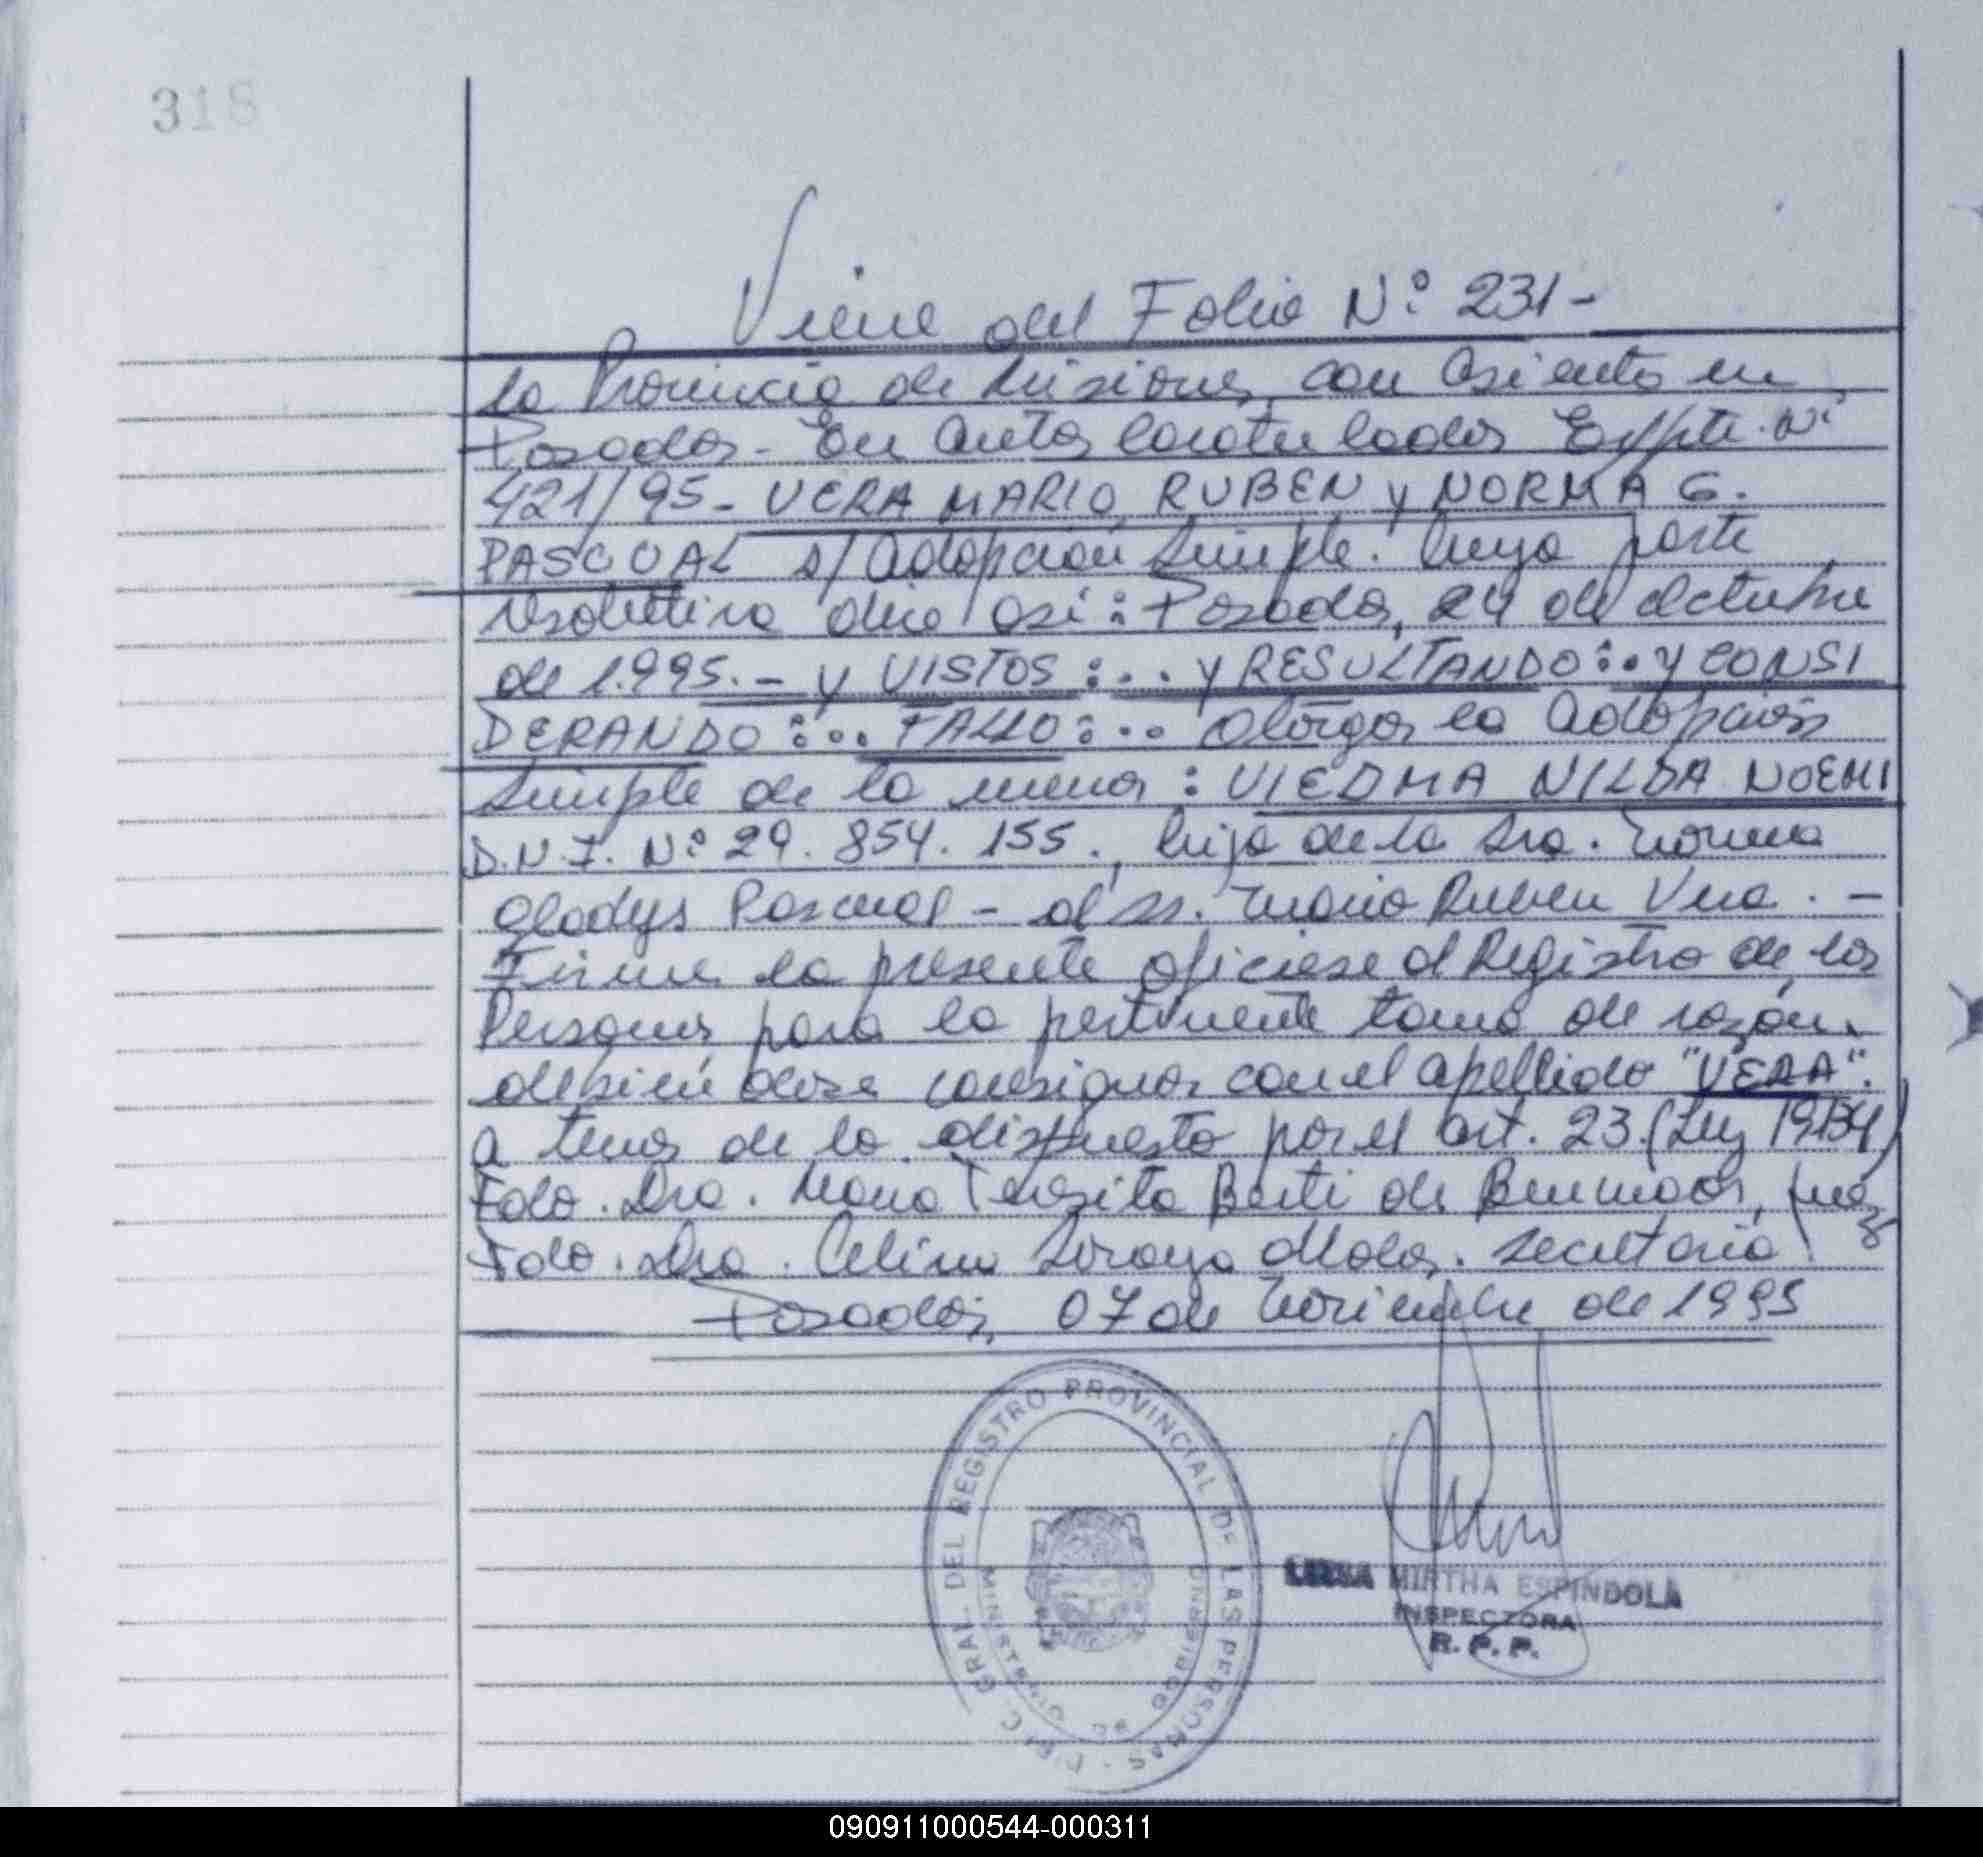 318
Viene del Folio Nº 231-
la Provincia de Misiones, con asiento en
Posadas- En autos caratulados Expte. Nº
421/95- VERA MARIO RUBEN y NORMA G.
PASCUAL s/ adopción Simple. Cuya parte
resolutiva dice así: Posadas, 24 de octubre
de 1.995.- y VISTOS:... y RESULTANDO:.. y CONSI
DERANDO:... FALLO:... Otorgar la adopción
Simple de la menor: VIEDMA NILDA NOEMI
D.N.I. Nº 29.854.155., hija de la Sra. Norma
Gladys Pascual - al Sr. Mario Ruben Vera. -
Firme la presente ofíciese al Registro de las
Personas para la pertinente toma de razón.
debiéndose consignar con el apellido "VERA".
a tenor de lo dispuesto por el art. 23.(Ley 19134)
Fdo. Dra. María Teresita Berti de, Juez
Fdo. Dra. Secretaria
Posadas, 07 de Noviembre de 1995
DIREC. GRAL. DEL REGISTRO PROVINCIAL DE LAS PERSONAS
MINISTERIO DE GOBIERNO
MIRTHA ESPINDOLA
INSPECTORA
R. P. P.
090911000544-000311